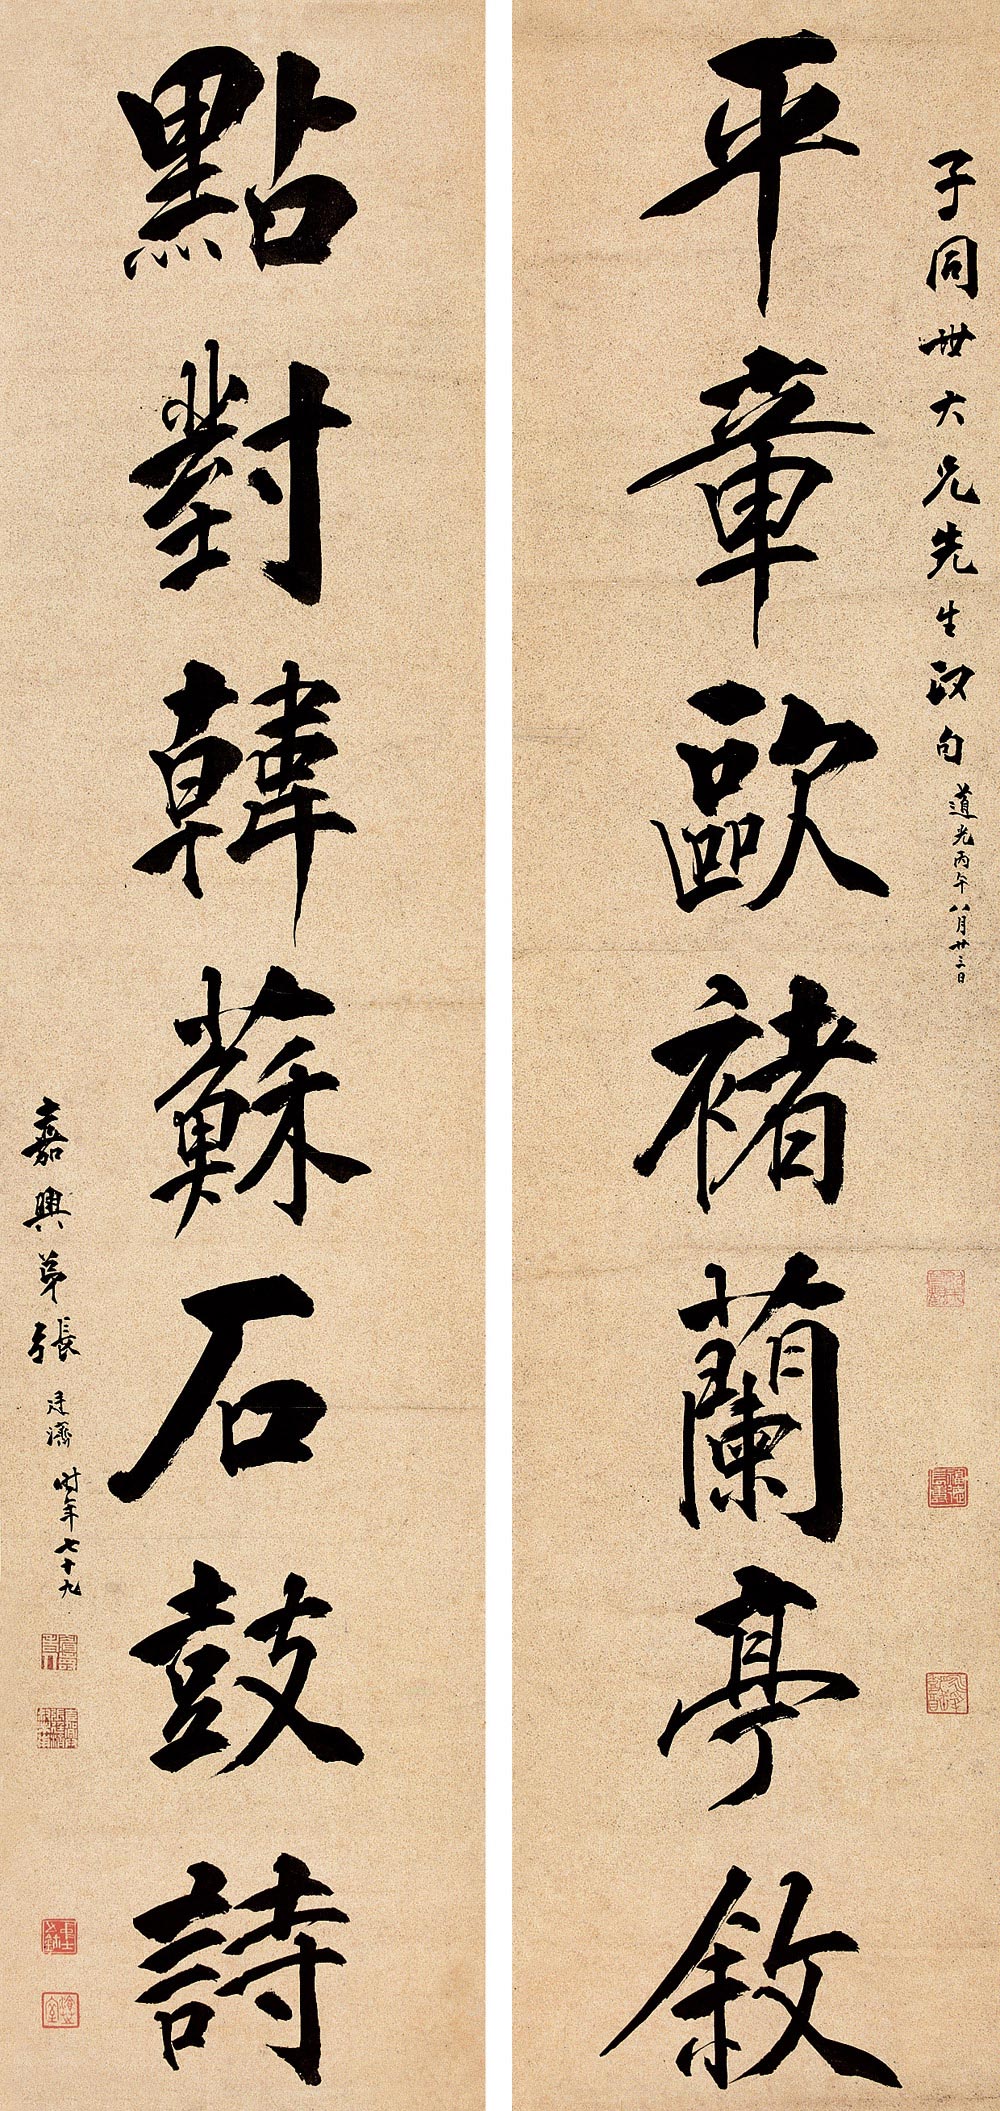 子同世大兄先生政句 道光丙午八月廿三日
平章歐褚蘭亭敘
點對韓蘇石鼓詩
嘉興弟張廷濟時年七十九